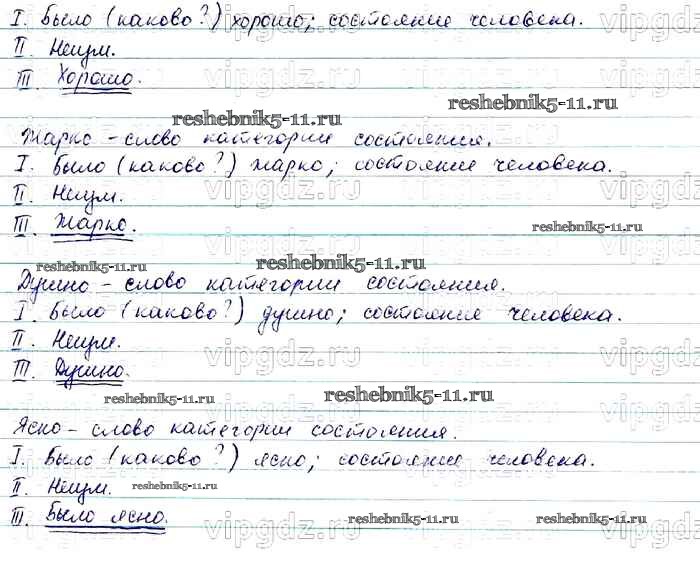 I. Было (каково?) хорошо; состояние человека.
II. Неизм.
III. Хорошо.
reshebnik5-11.ru
reshebnik5-11.ru
Жарко - слово категории состояния.
I. Было (каково?) жарко; состояние человека.
II. Неизм.
III. Жарко.
reshebnik5-11.ru
reshebnik5-11.ru
reshebnik5-11.ru
Душно - слово категории состояния.
I. Было (каково?) душно; состояние человека.
II. Неизм.
III. Душно.
reshebnik5-11.ru
reshebnik5-11.ru
Ясно - слово категории состояния.
I. Было (каково?) ясно; состояние человека.
II. Неизм.
reshebnik5-11.ru
III. Было ясно.
reshebnik5-11.ru
reshebnik5-11.ru
vipgdz.ru